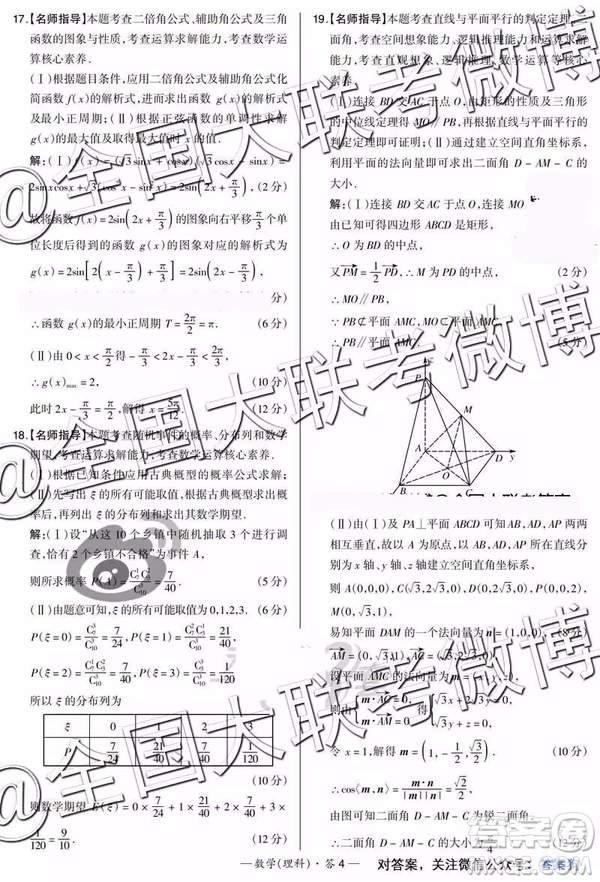 17.【名师指导】本题考查二倍角公式、辅助角公式及三角
函数的图象与性质,考查运算求解能力,考查数学运
算核心素养.
(Ⅰ)根据题目条件,应用二倍角公式及辅助角公式化
简函数f(x)的解析式,进而求出函数g(x)的解析式
及最小正周期;(Ⅱ)根据正弦函数的单调性求解
g(x)的最大值及取得最大值时x的值.
解:(Ⅰ)f(x)=(√3sinx+cosx)(√3cosx-sinx)=
2sinxcosx+√3(cos²x-sin²x)=2sin(2x+π/3),(2分)
故将函数f(x)=2sin(2x+π/3)的图象向右平移π/3个单
位长度后得到的函数g(x)的图象对应的解析式为
g(x)=2sin[2(x-π/3)+π/3]=2sin(2x-π/3),
分)
∴函数g(x)的最小正周期T=2π/2=π. (6分)
(Ⅱ)由0<x<π/2得-π/3<2x-π/3<2π/3,
∴g(x)max=2, (10分)
此时2x-π/3=π/2,即x=5π/12. (12分)
18.【名师指导】本题考查随机事件的概率、分布列和数学
期望,考查运算求解能力,考查数学运算核心素养.
(Ⅰ)根据已知条件应用古典概型的概率公式求解;
(Ⅱ)先写出ξ的所有可能取值,根据古典概型求出概
率,再列出ξ的分布列和求出其数学期望.
解:(Ⅰ)设“从这10个乡镇中随机抽取3个进行调
查,恰有2个乡镇不合格”为事件A,
则所求概率P(A)=C¹₇C²₃/C³₁₀=7/40. (5分)
(Ⅱ)由题意可知,ξ的所有可能取值为0,1,2,3. (6分)
P(ξ=0)=C³₇/C³₁₀=7/24,P(ξ=1)=C²₇C¹₃/C³₁₀=21/40,
P(ξ=2)=C¹₇C²₃/C³₁₀=7/40,P(ξ=3)=C³₃/C³₁₀=1/120
所以ξ的分布列为
ξ 0 1 2 3
P 7/24 21/40 7/40 1/120
(10分)
则数学期望E(ξ)=0×7/24+1×21/40+2×7/40+3×
1/120=9/10. (12分)
19.【名师指导】本题考查直线与平面平行的判定定理、
面角,考查空间想象能力、逻辑推理能力和运算求解能力,
考查直观想象、逻辑推理、数学运算等核心素养.
(Ⅰ)连接BD交AC于点O,由矩形的性质及三角形
的中位线定理得MO∥PB,再根据线面平行的判定
定理即可证明;(Ⅱ)通过建立空间直角坐标系,
利用平面的法向量即可求出二面角D-AM-C的
大小.
解:(Ⅰ)连接BD交AC于点O,连接MO
由已知可得四边形ABCD是矩形,
∴O为BD的中点,
又PM=1/2PD,∴M为PD的中点, (2分)
∴MO∥PB,
∵PB⊄平面AMC,MO⊂平面AMC,
∴PB∥平面AMC. (5分)
P
M
A
D
O
B
C
(Ⅱ)由(Ⅰ)及PA⊥平面ABCD可知AB,AD,AP两两
相互垂直,故以A为原点,AB,AD,AP所在直线分别
为x轴、y轴、z轴建立空间直角坐标系,
则A(0,0,0),C(√3,3,0),D(0,2√3,0),P(0,0,2),
M(0,√3,1),
易知平面DAM的一个法向量为n=(1,0,0),(8分)
AM=(0,√3,1),
设平面AMC的法向量为m=(x,y,z),
令x=1,解得m= (10分)
∴cos⟨m,n⟩=|m·n|/|m||n|=√2/2,
由图可知二面角D-AM-C的大小为锐角,
∴二面角D-AM-C的大小为π/4. (12分)
—数学(理科)·答4—
对答案,关注微信公众号:答案圈
@全国大联考微博
@全国大联考微博
@全国大联考微博